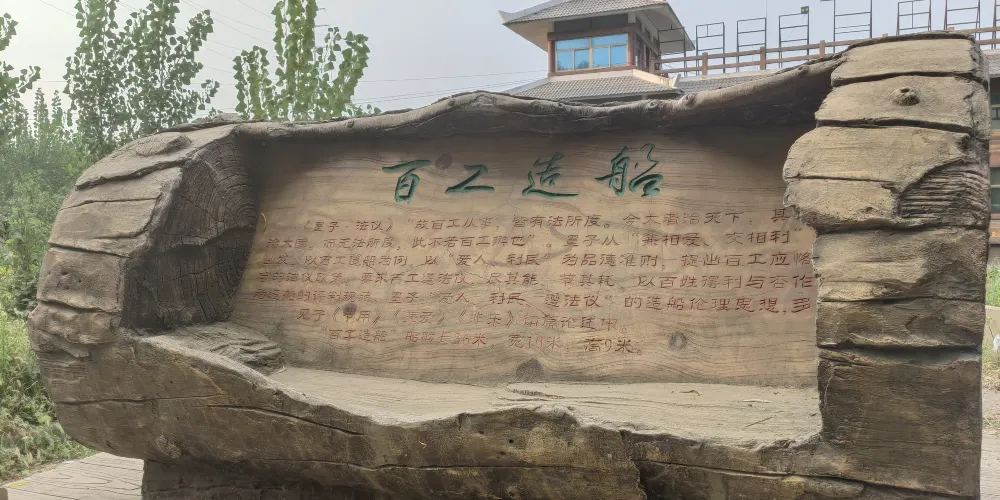 百工造船
《墨子·法仪》“故百工从事，皆有法所度。今大者治天下，其
治大国，而无法所度，此不若百工辩也”。墨子从“兼相爱、交相利”
出发，以百工造船为例，以“爱人、利民”为品德准则，提出百工应恪
守 要求百工遵法仪、尽其能、节其耗，以百姓得利与否作
为造船的评判 墨子“爱人、利民、遵法仪”的造船伦理思想，多
见于《节用》《兼爱》《非乐》 篇论述中。
“百工造船” 船长36米，宽10米，高9米。